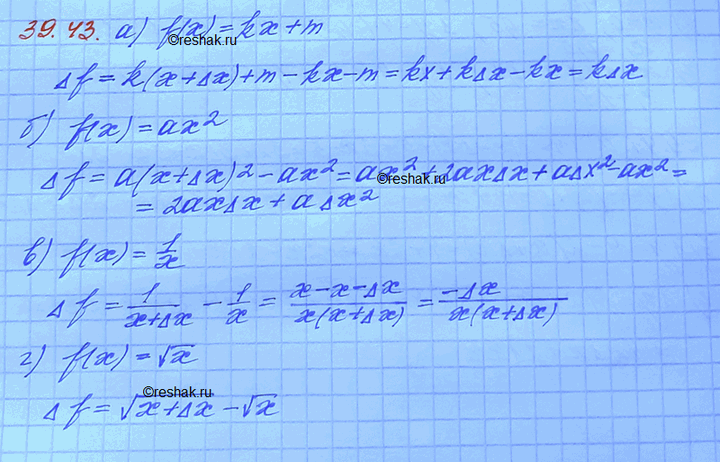 39.43. а) f(x) = kx + m
©reshak.ru
Δf = k(x + Δx) + m - kx - m = kx + kΔx - kx = kΔx
б) f(x) = ax²
Δf = a(x + Δx)² - ax² = ax² + 2axΔx + aΔx² - ax² =
©reshak.ru
= 2axΔx + aΔx²
в) f(x) = 1/x
Δf = 1/(x + Δx) - 1/x = (x - x - Δx)/(x(x + Δx)) = (-Δx)/(x(x + Δx))
г) f(x) = √x
©reshak.ru
Δf = √(x + Δx) - √x